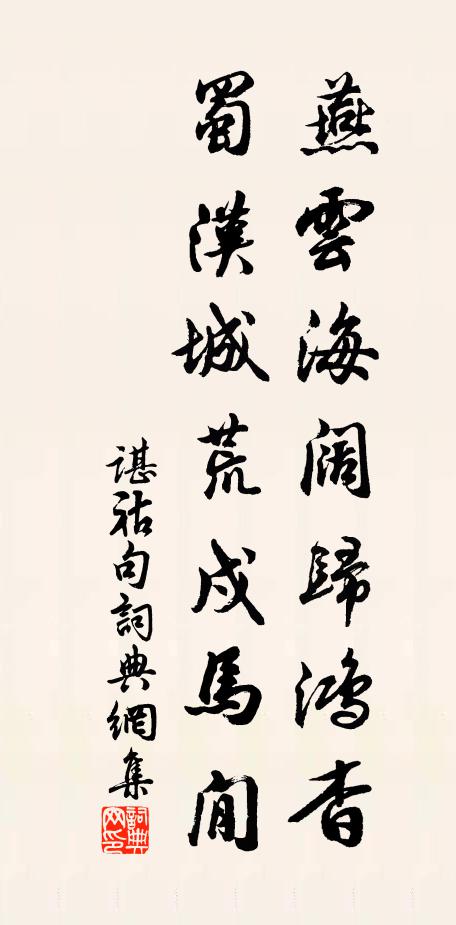 燕雲海闊歸鴻杳
蜀漢城荒戍馬閒
諶祜句詞典網集
詞典網印